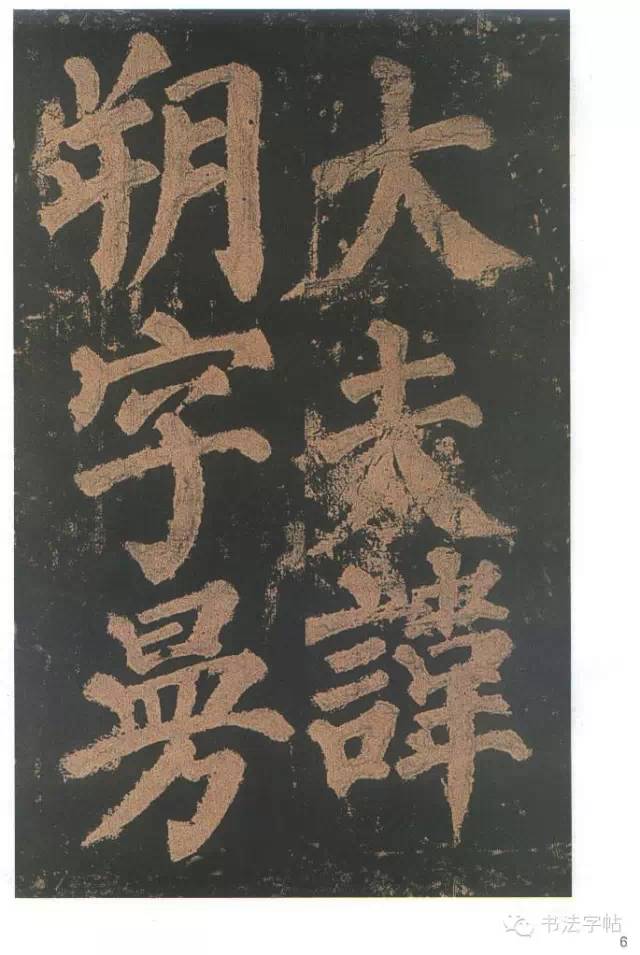 大夫諱
朔字曼
书法字帖
6